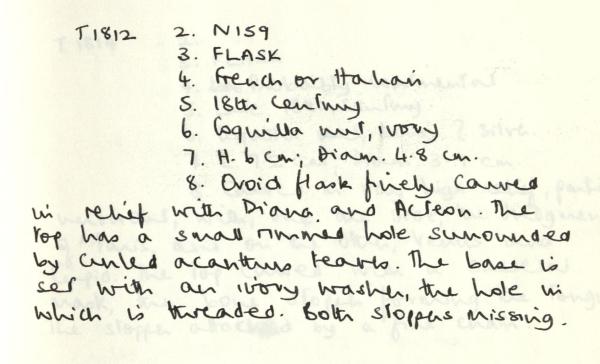 T1812 2. N159
3. FLASK
4. French or Italian
5. 18th Century
6. Coquilla nut, ivory
7. H. 6 cm; Diam 4.8 cm.
8. Ovoid flask finely carved
in relief with Diana and Acteon. The
top has a small rimmed hole surrounded
by curled acanthus leaves. The base is
set with an ivory washer, the hole in
which is threaded. Both stoppers missing.